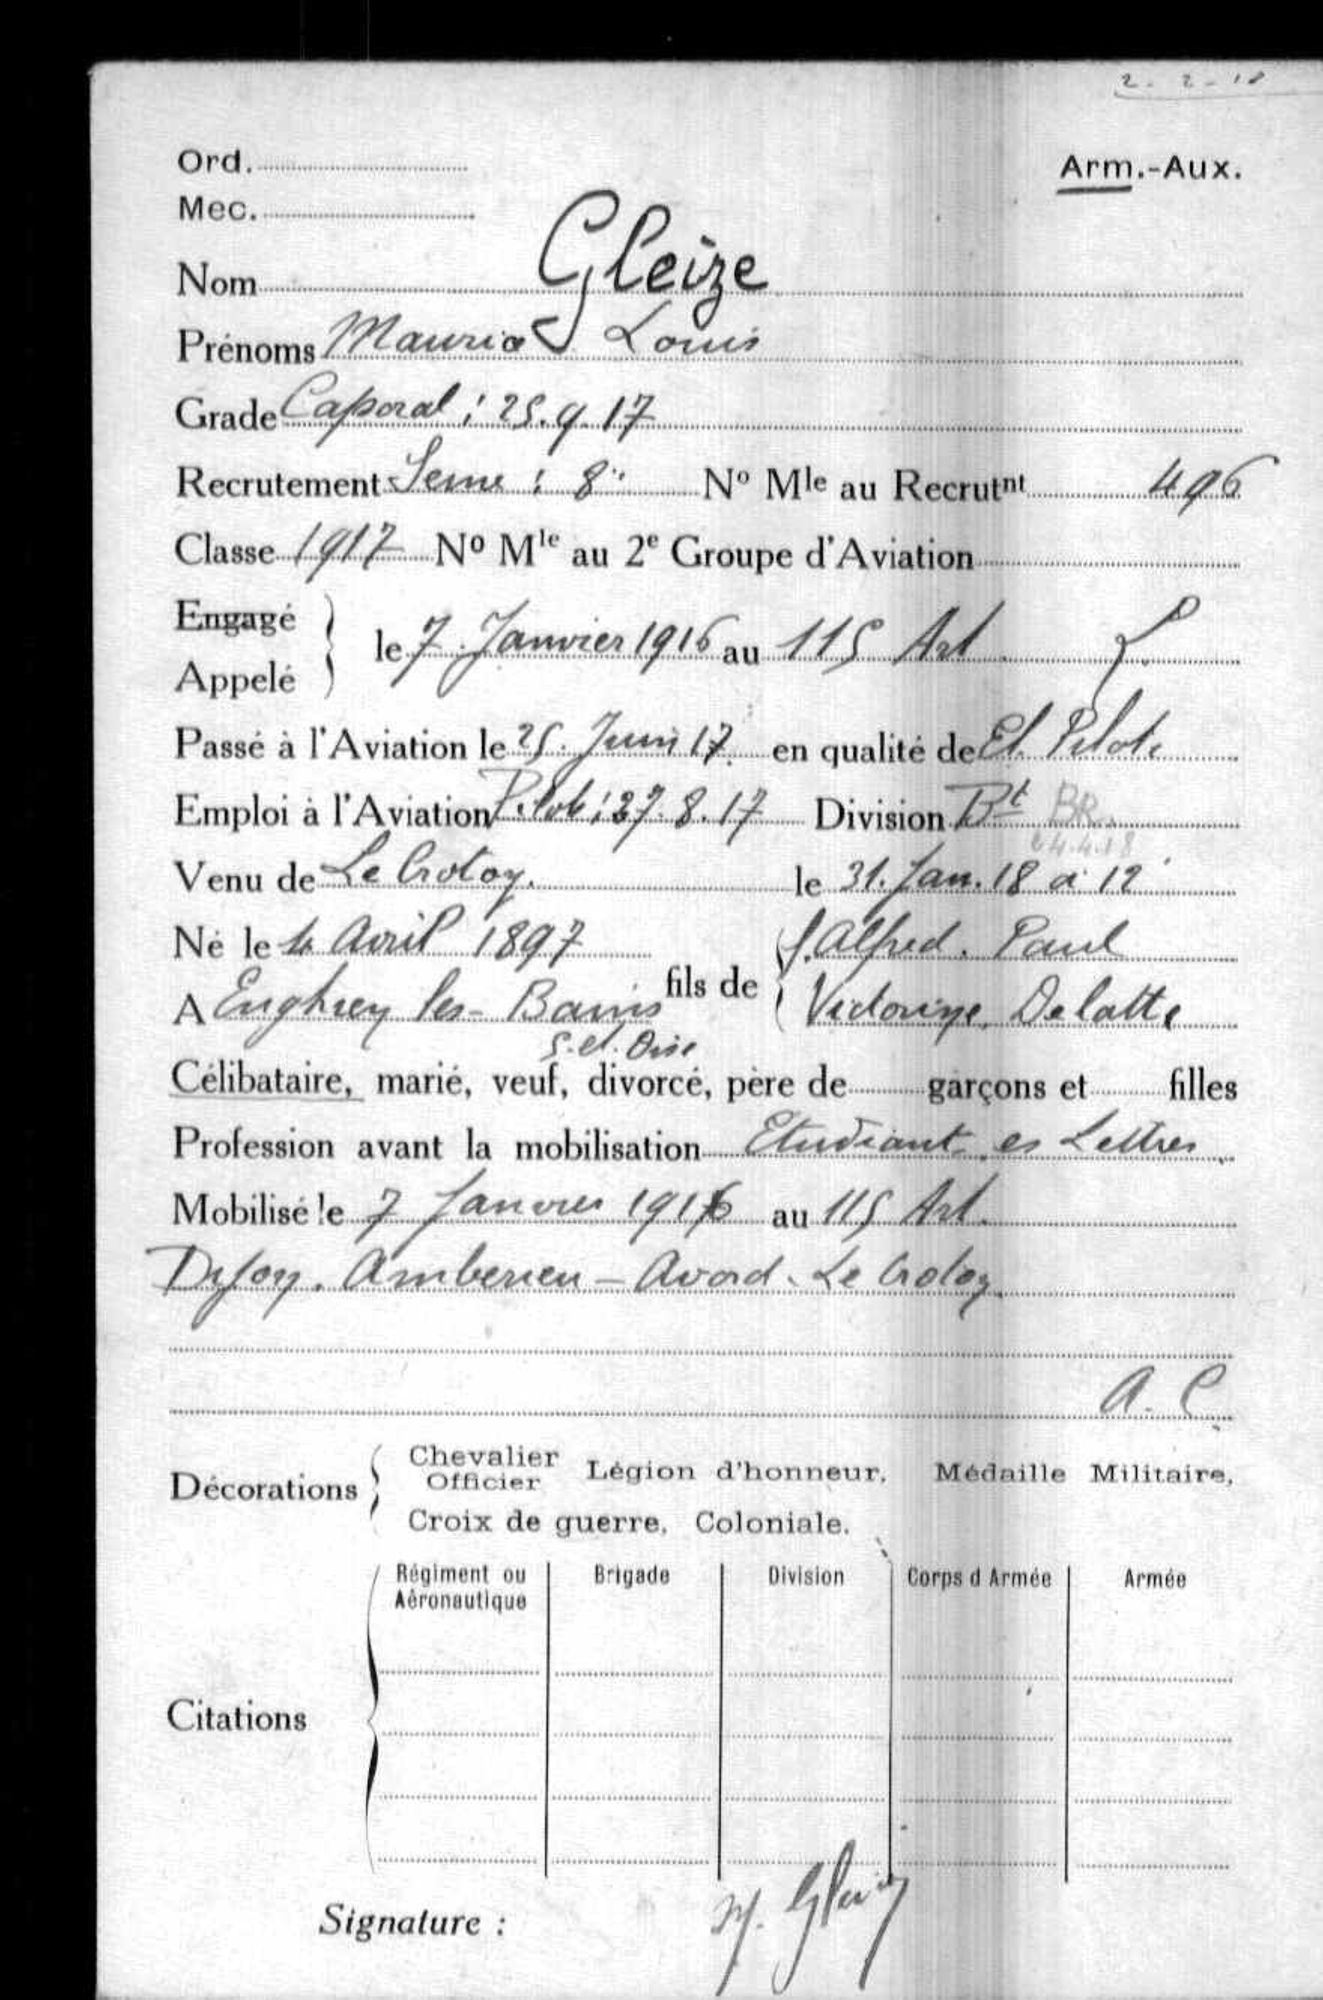 2 - 2 - 18
Ord.
Arm.-Aux.
Mec.
Nom Gleize
Prénoms Maurice Louis
Grade Caporal : 25.9.17
Recrutement Seine : 8e No Mle au Recrutnt 496
Classe 1917 No Mle au 2e Groupe d'Aviation
Engagé
Appelé
le 7 Janvier 1916 au 115 Art
Passé à l'Aviation le 25. Juin 17 en qualité de El. Pilote
Emploi à l'Aviation Pilote : 27.8.17 Division Bt BR.
24.4.18
Venu de Le Crotoy. le 31. Jan. 18 à 12
Né le 4 Avril 1897 fils de f. Alfred. Paul
A Enghien les-Bains Victorine Delatte
S. et. Oise
Célibataire, marié, veuf, divorcé, père de garçons et filles
Profession avant la mobilisation Etudiant es Lettres
Mobilisé le 7 Janvier 1916 au 115 Art.
Dijon. Amberieu - Avord. Le Crotoy
A. C
Décorations
Chevalier
Officier
Légion d'honneur, Médaille Militaire,
Croix de guerre, Coloniale.
Régiment ou
Aéronautique
Brigade
Division
Corps d Armée
Armée
Citations
Signature : M. Gleize